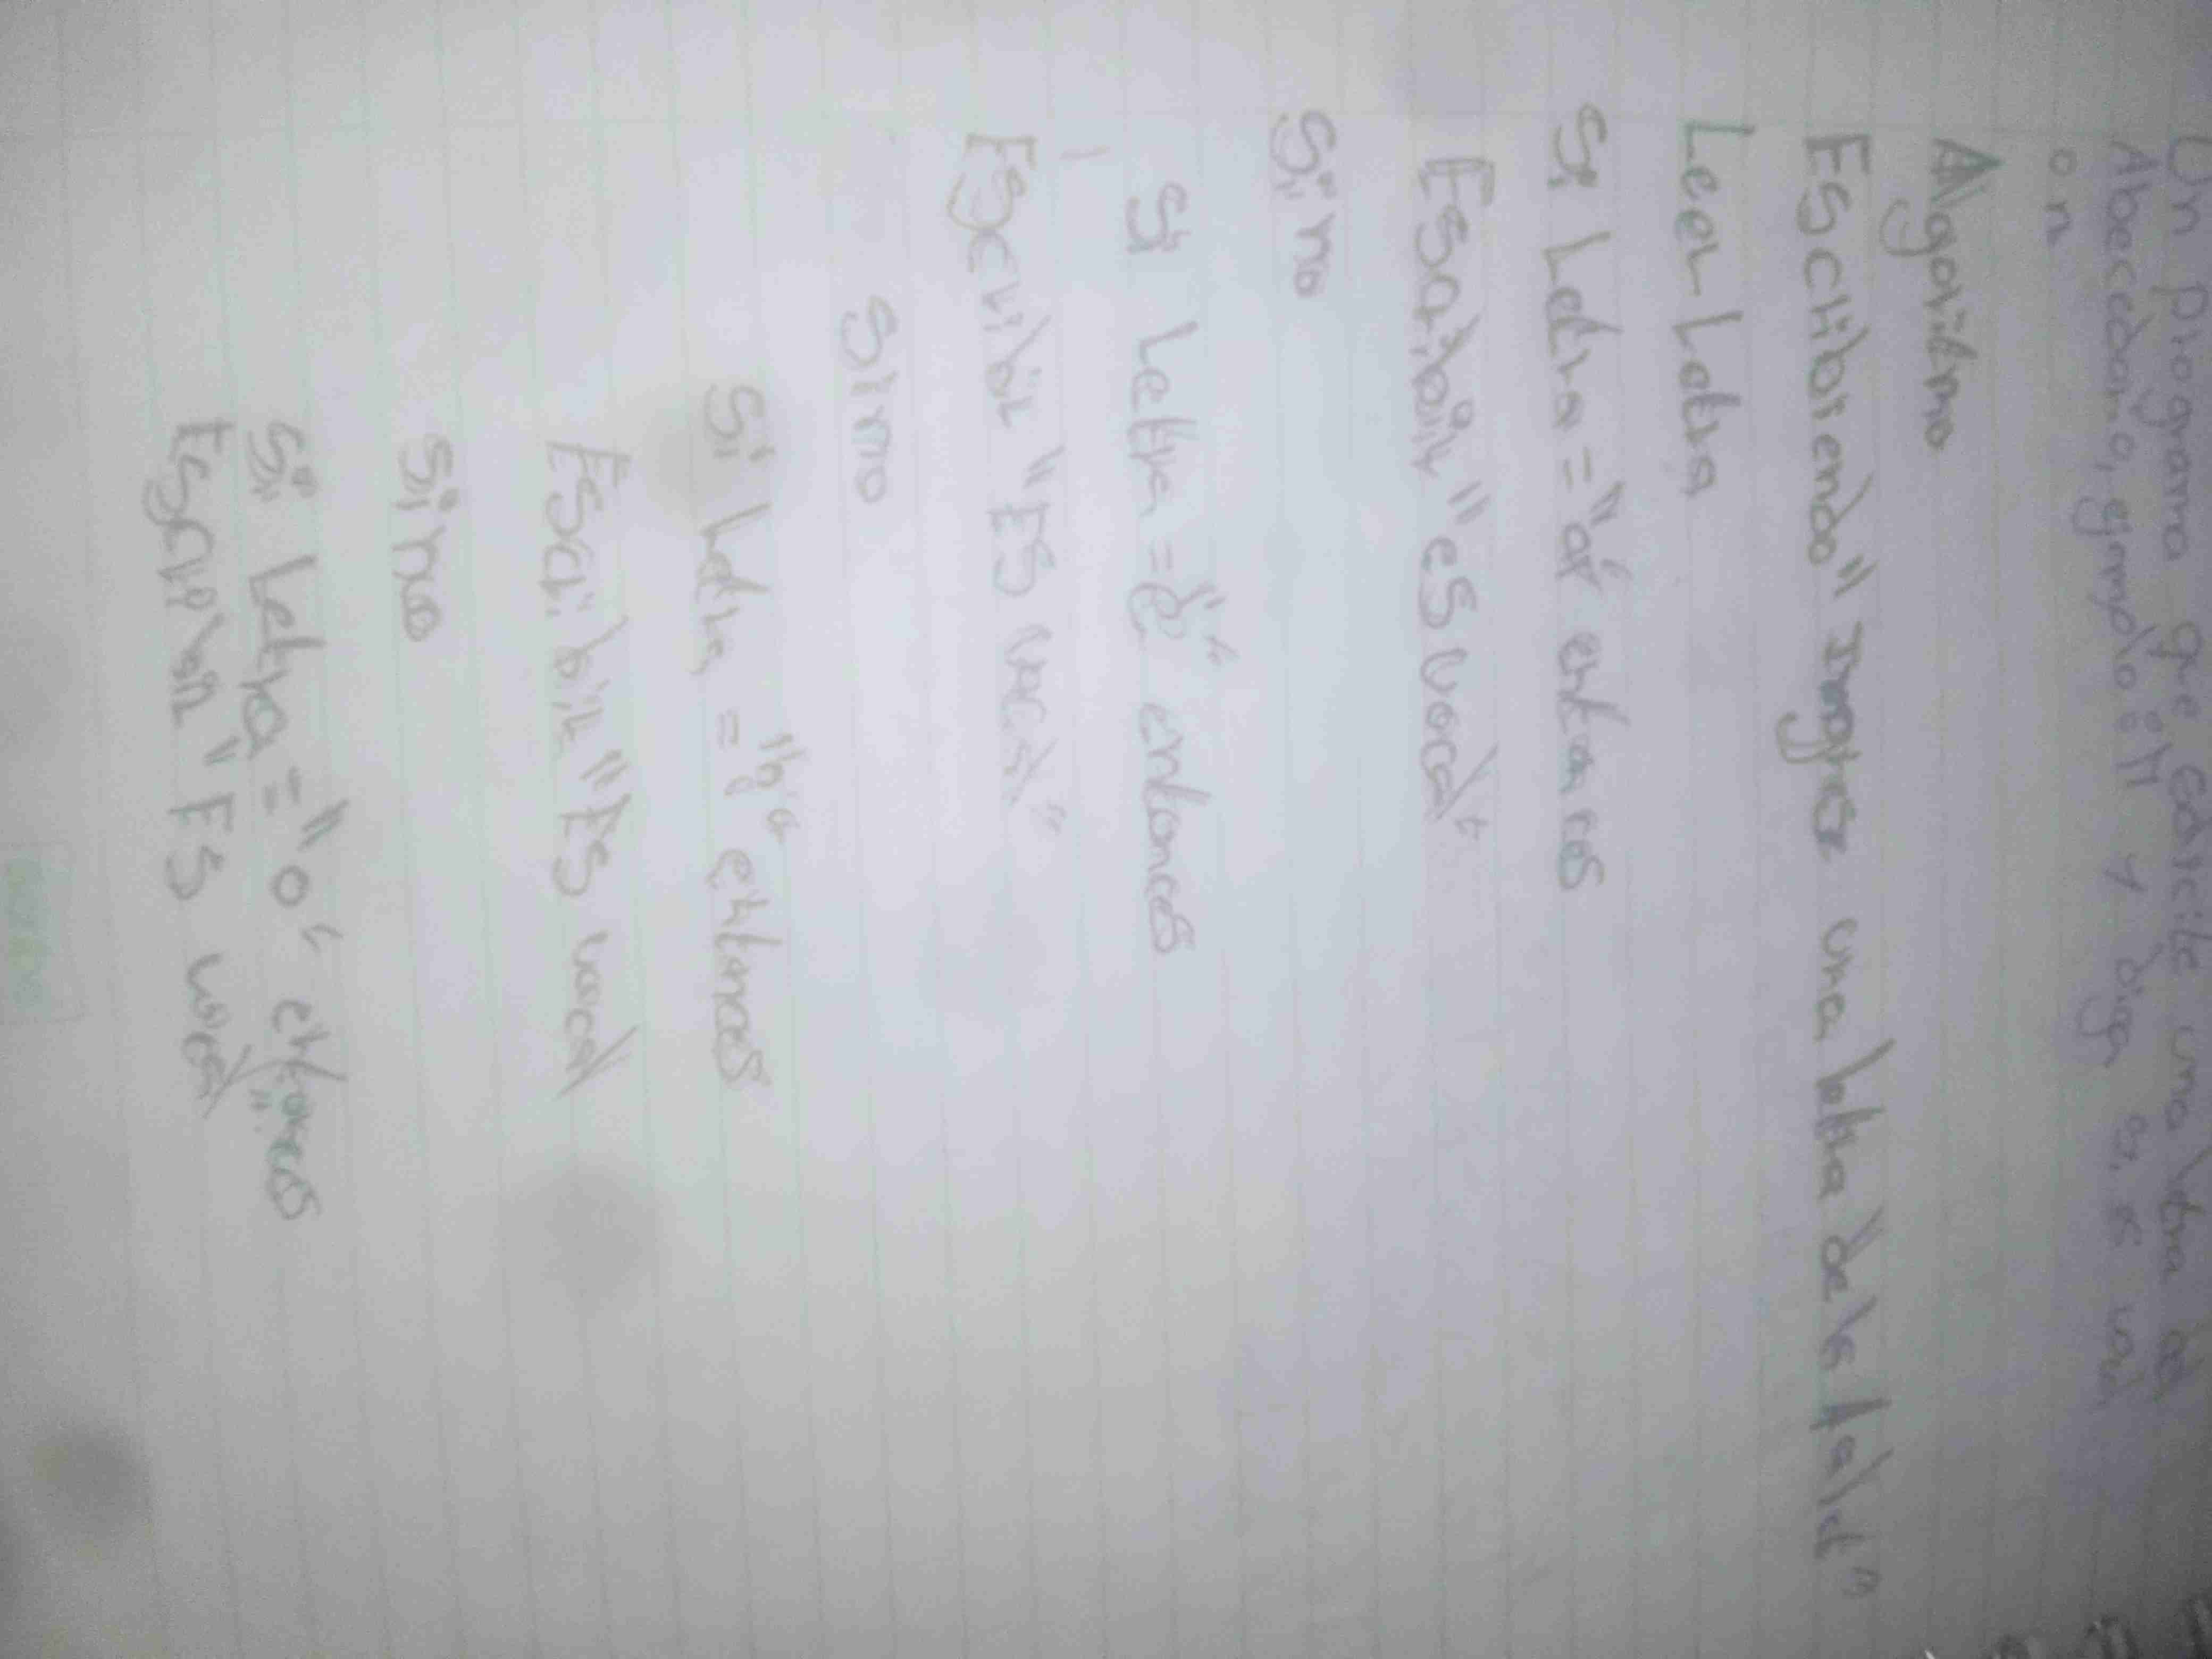 Un programa que este una letra del
Abecedario, ejemplo: M y diga si es vocal
o n
Algoritmo
Escribiendo "Ingrese una letra de la A a la
Leer Letra
Si Letra = "a" entonces
Escribir "es vocal"
Sino
Si Letra = "e" entonces
Escribir "Es vocal"
Sino
Si Letra = entonces
Escribir "Es vocal
Sino
Si Letra = "o" entonces
Escribir "Es vocal"